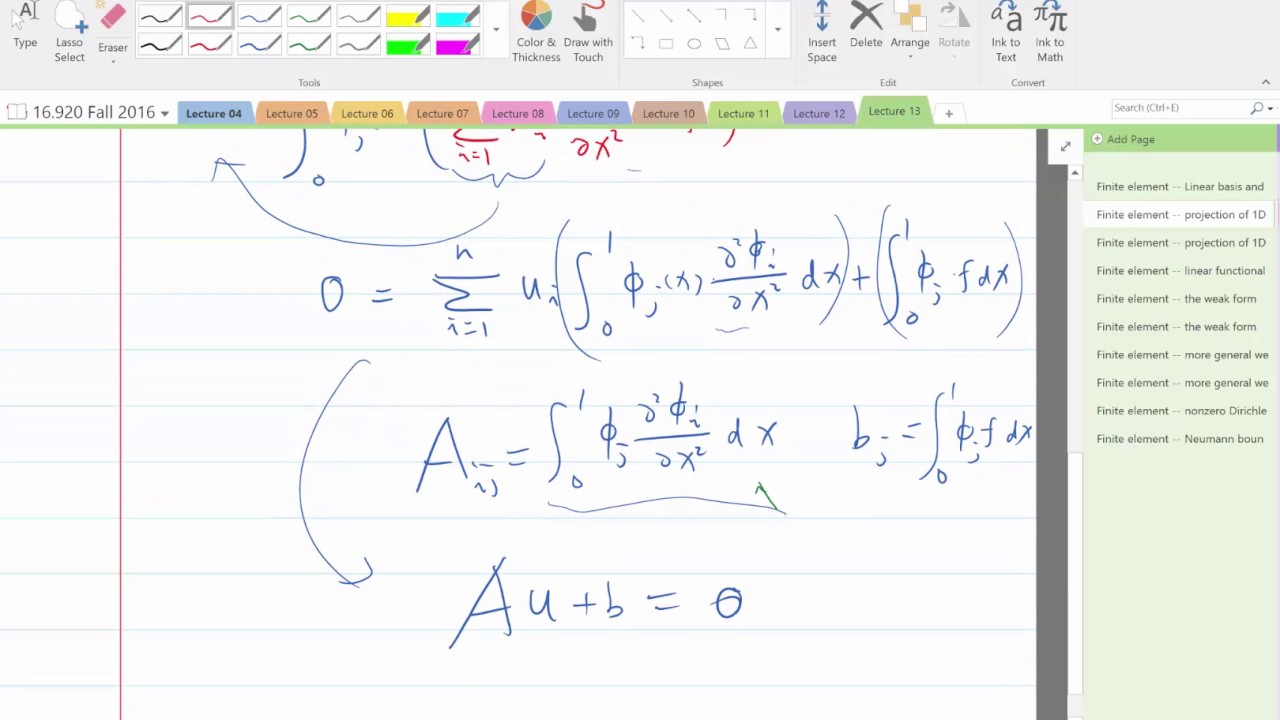 Type
Lasso Select
Eraser
Color & Thickness
Draw with Touch
Insert Space
Delete
Arrange
Rotate
Ink to Text
Ink to Math
Tools
Shapes
Edit
Convert
16.920 Fall 2016
Lecture 04
Lecture 05
Lecture 06
Lecture 07
Lecture 08
Lecture 09
Lecture 10
Lecture 11
Lecture 12
Lecture 13
Search (Ctrl+E)
Add Page
Finite element -- Linear basis and
Finite element -- projection of 1D
Finite element -- projection of 1D
Finite element -- linear functional
Finite element -- the weak form
Finite element -- the weak form
Finite element -- more general we
Finite element -- more general we
Finite element -- nonzero Dirichle
Finite element -- Neumann boun
∫₀ i=1 ∂x²
0 = Σᵢ₌₁ⁿ uᵢ (∫₀¹ ϕⱼ(x) ∂²ϕᵢ/∂x² dx) + (∫₀¹ ϕⱼ·f dx)
Aᵢⱼ = ∫₀¹ ϕⱼ ∂²ϕᵢ/∂x² dx bⱼ = ∫₀¹ ϕⱼ f dx
Au + b = 0